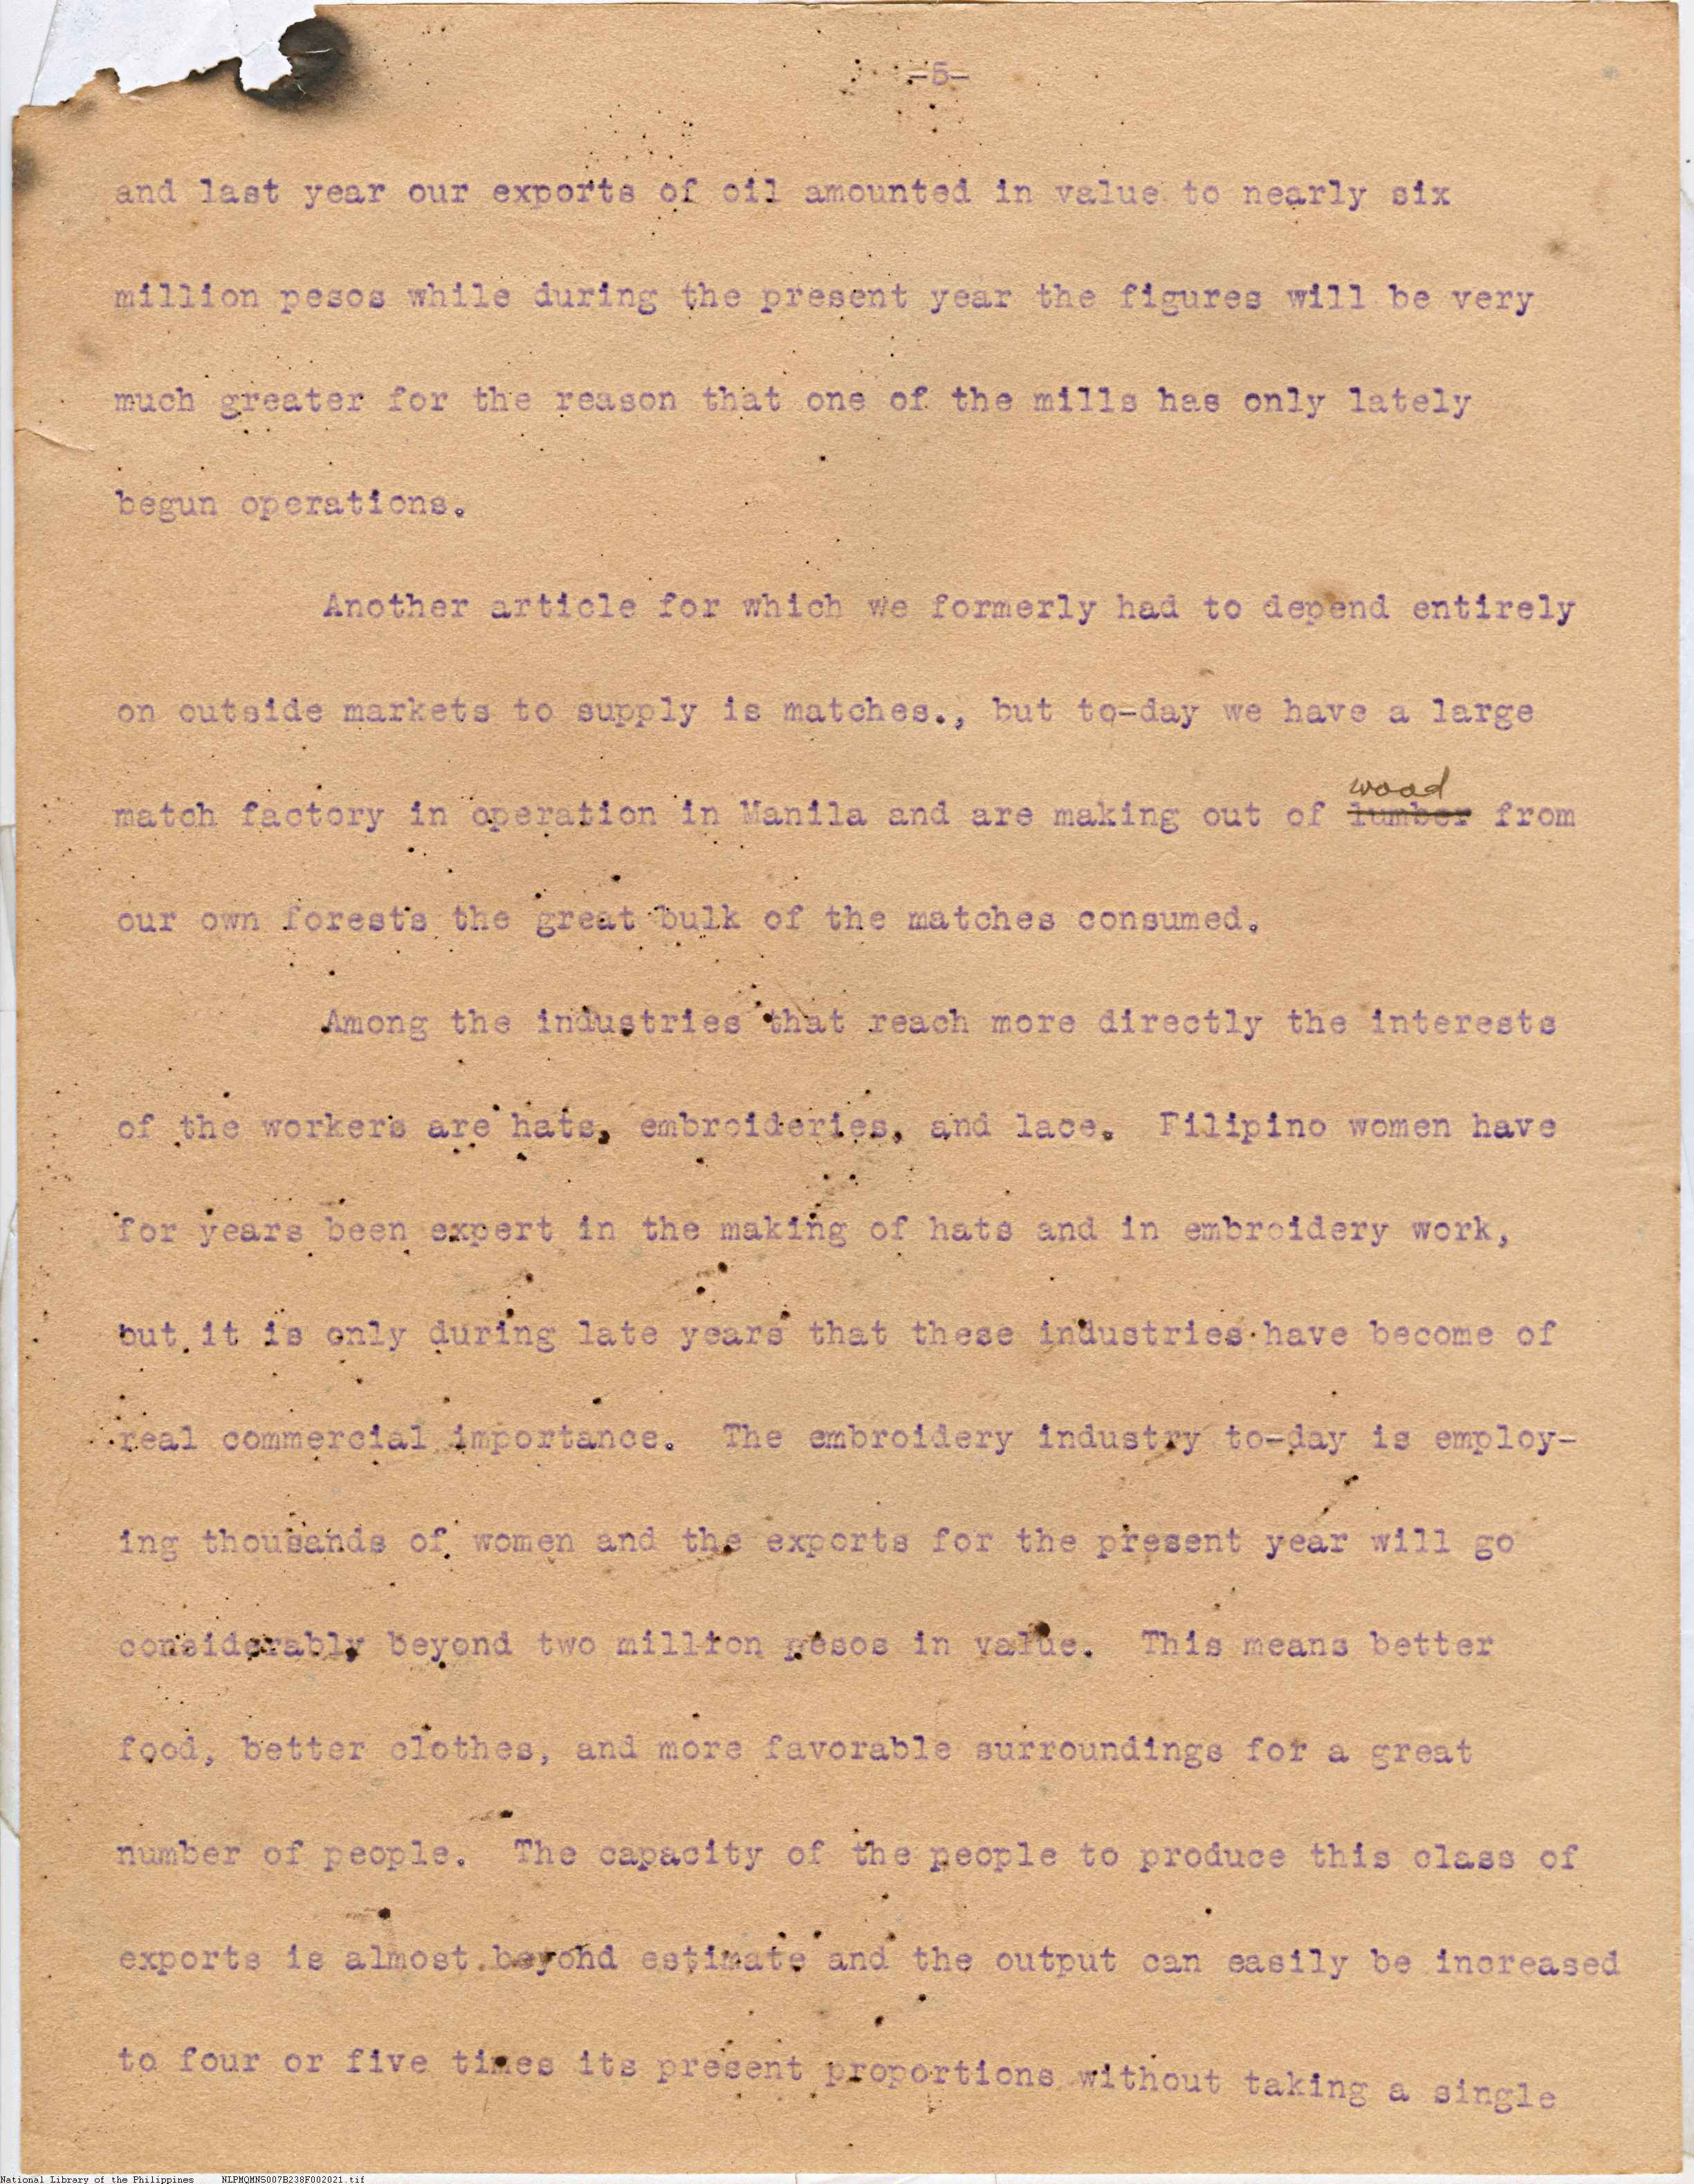 -5-
and last year our exports of oil amounted in value to nearly six
million pesos while during the present year the figures will be very
much greater for the reason that one of the mills has only lately
begun operations.
Another article for which we formerly had to depend entirely
on outside markets to supply is matches., but to-day we have a large
wood
match factory in operation in Manila and are making out of lumber from
our own forests the great bulk of the matches consumed.
Among the industries that reach more directly the interests
of the workers are hats, embroideries, and lace. Filipino women have
for years been expert in the making of hats and in embroidery work,
but it is only during late years that these industries have become of
real commercial importance. The embroidery industry to-day is employ-
ing thousands of women and the exports for the present year will go
considerably beyond two million pesos in value. This means better
food, better clothes, and more favorable surroundings for a great
number of people. The capacity of the people to produce this class of
exports is almost beyond estimate and the output can easily be increased
to four or five times its present proportions without taking a single
National Library of the Philippines NLPMQMNS007B238F002021.tif